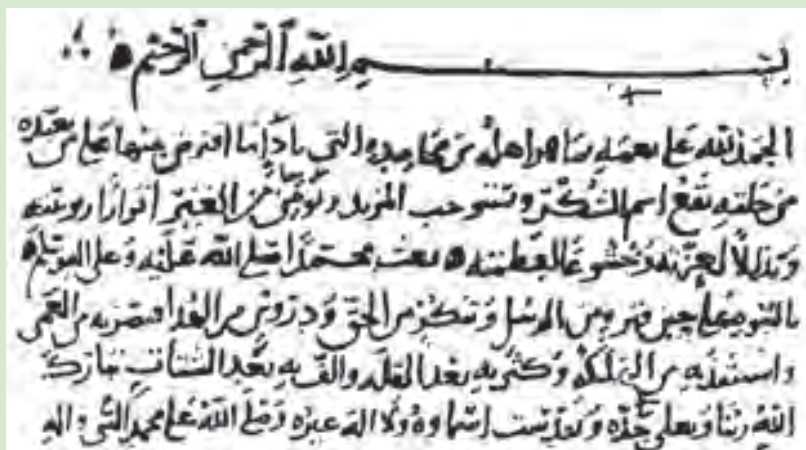 بسم الله الرحمن الرحيم
الحمد لله على نعمه بما هو اهله من محامده التي بأداء ما افترض منها على من تعبده
من خلقه يقع اسم الشكر وتستوجب المزيد من اقرارا بربوبيته
وتذللا لعزته وخشوعا لعظمته بعث محمدا صلى الله عليه وعلى اله وسلم
بالنبوة على حين فترة من الرسل من الحق ودروس من الهدى فبصر به من العمى
واستنقذ به من الهلكة وكثر به بعد القلة والف به بعد الشتات تبارك
الله ربنا وتعالى جده وتقدست اسماؤه ولا اله غيره وصلى الله على محمد النبي واله